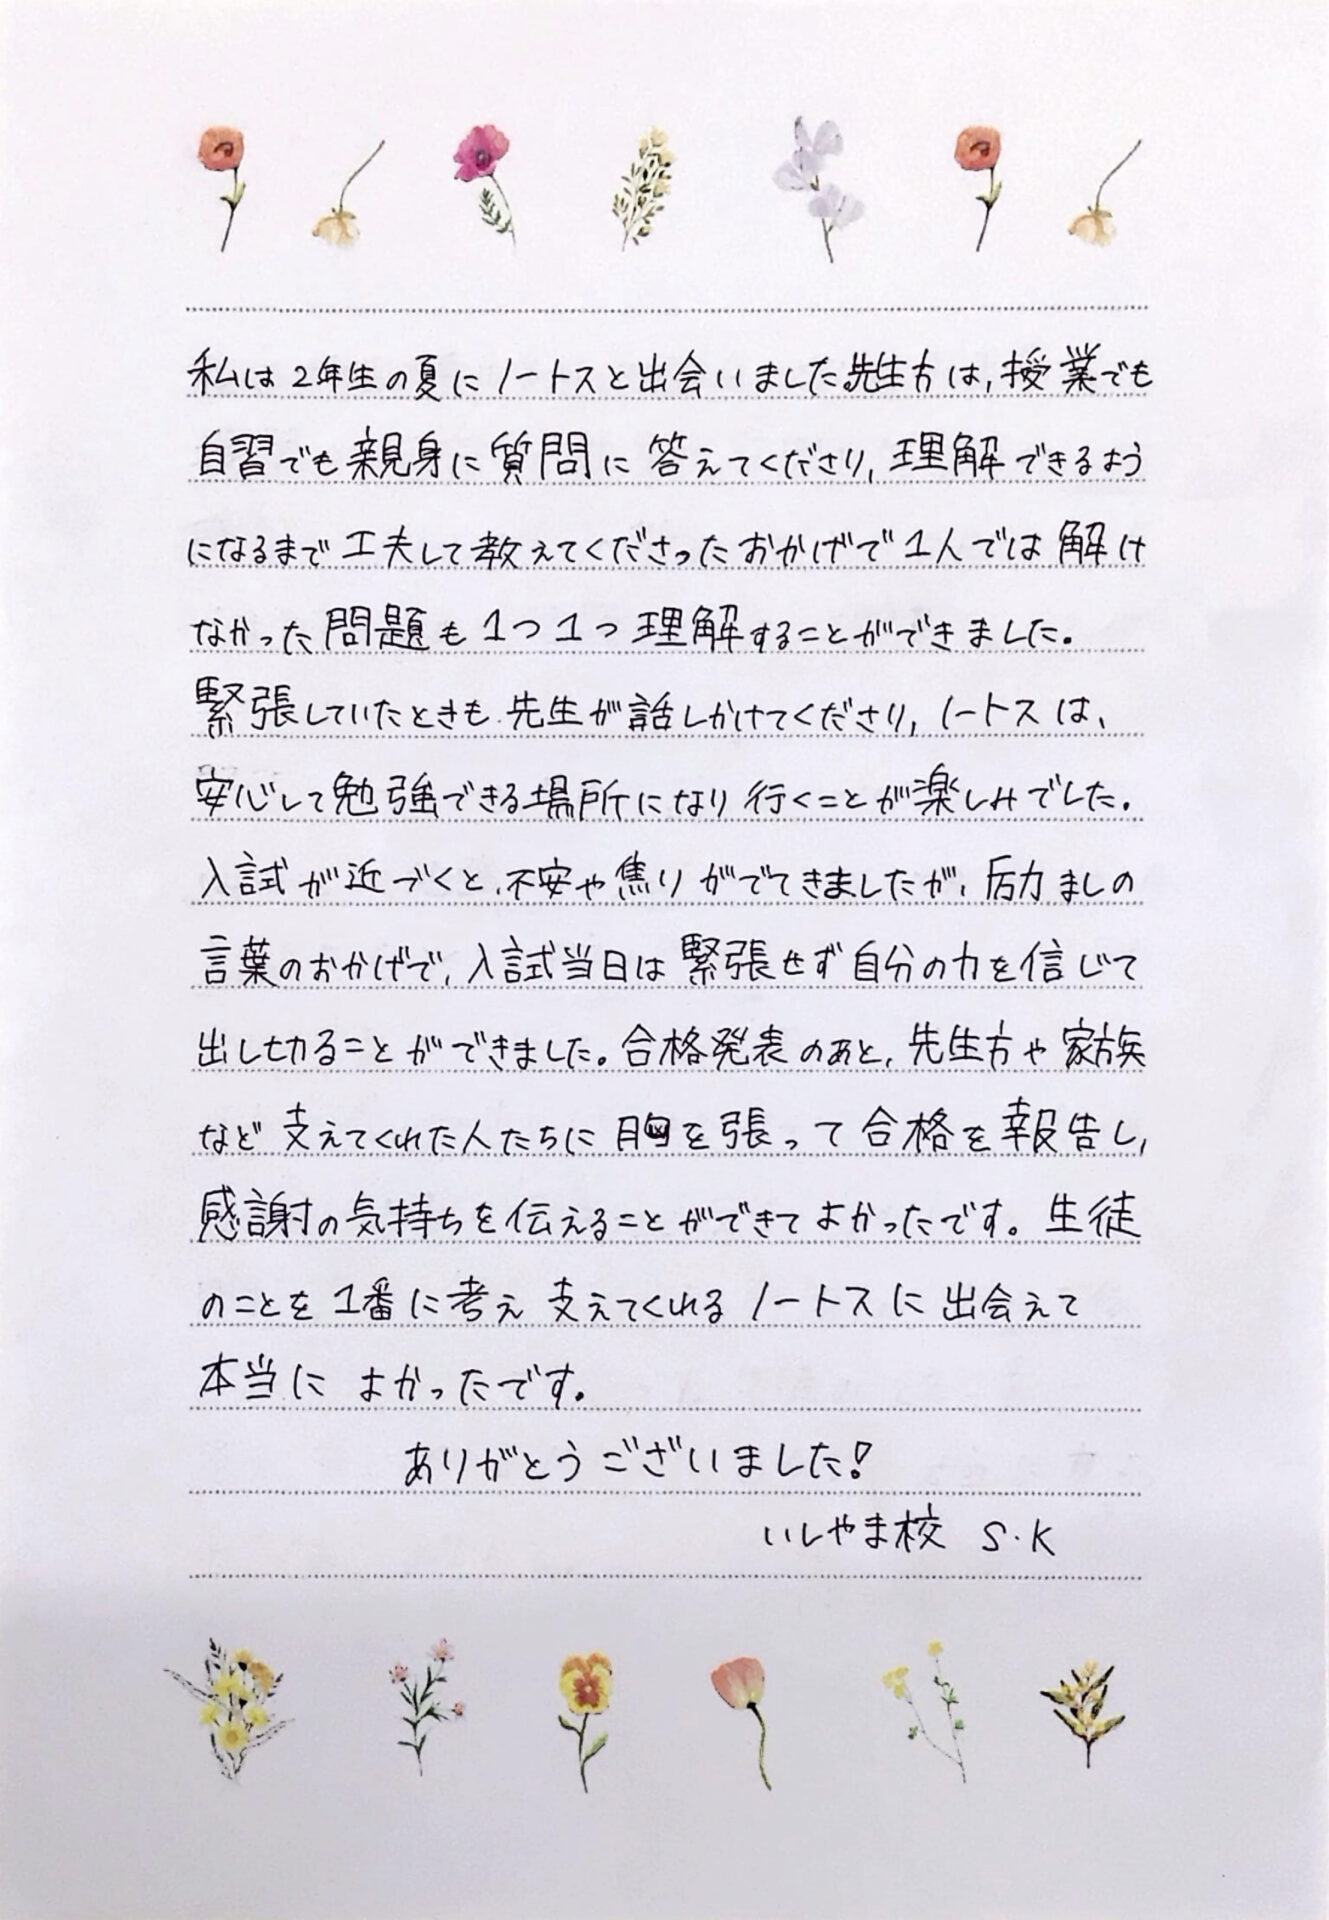 私は2年生の夏にノートスと出会いました先生方は,授業でも
自習でも親身に質問に答えてくださり,理解できるよう
になるまで工夫して教えてくださったおかげで1人では解け
なかった問題も1つ1つ理解することができました。
緊張していたときも先生が話しかけてくださり,ノートスは、
安心して勉強できる場所になり行くことが楽しみでした。
入試が近づくと、不安や焦りがでてきましたが、励ましの
言葉のおかげで,入試当日は緊張せず自分の力を信じて
出し切ることができました。合格発表のあと,先生方や家族
など支えてくれた人たちに胸を張って合格を報告し,
感謝の気持ちを伝えることができてよかったです。生徒
のことを1番に考え支えてくれるノートスに出会えて
本当によかったです。
ありがとうございました!
いしやま校 S・K